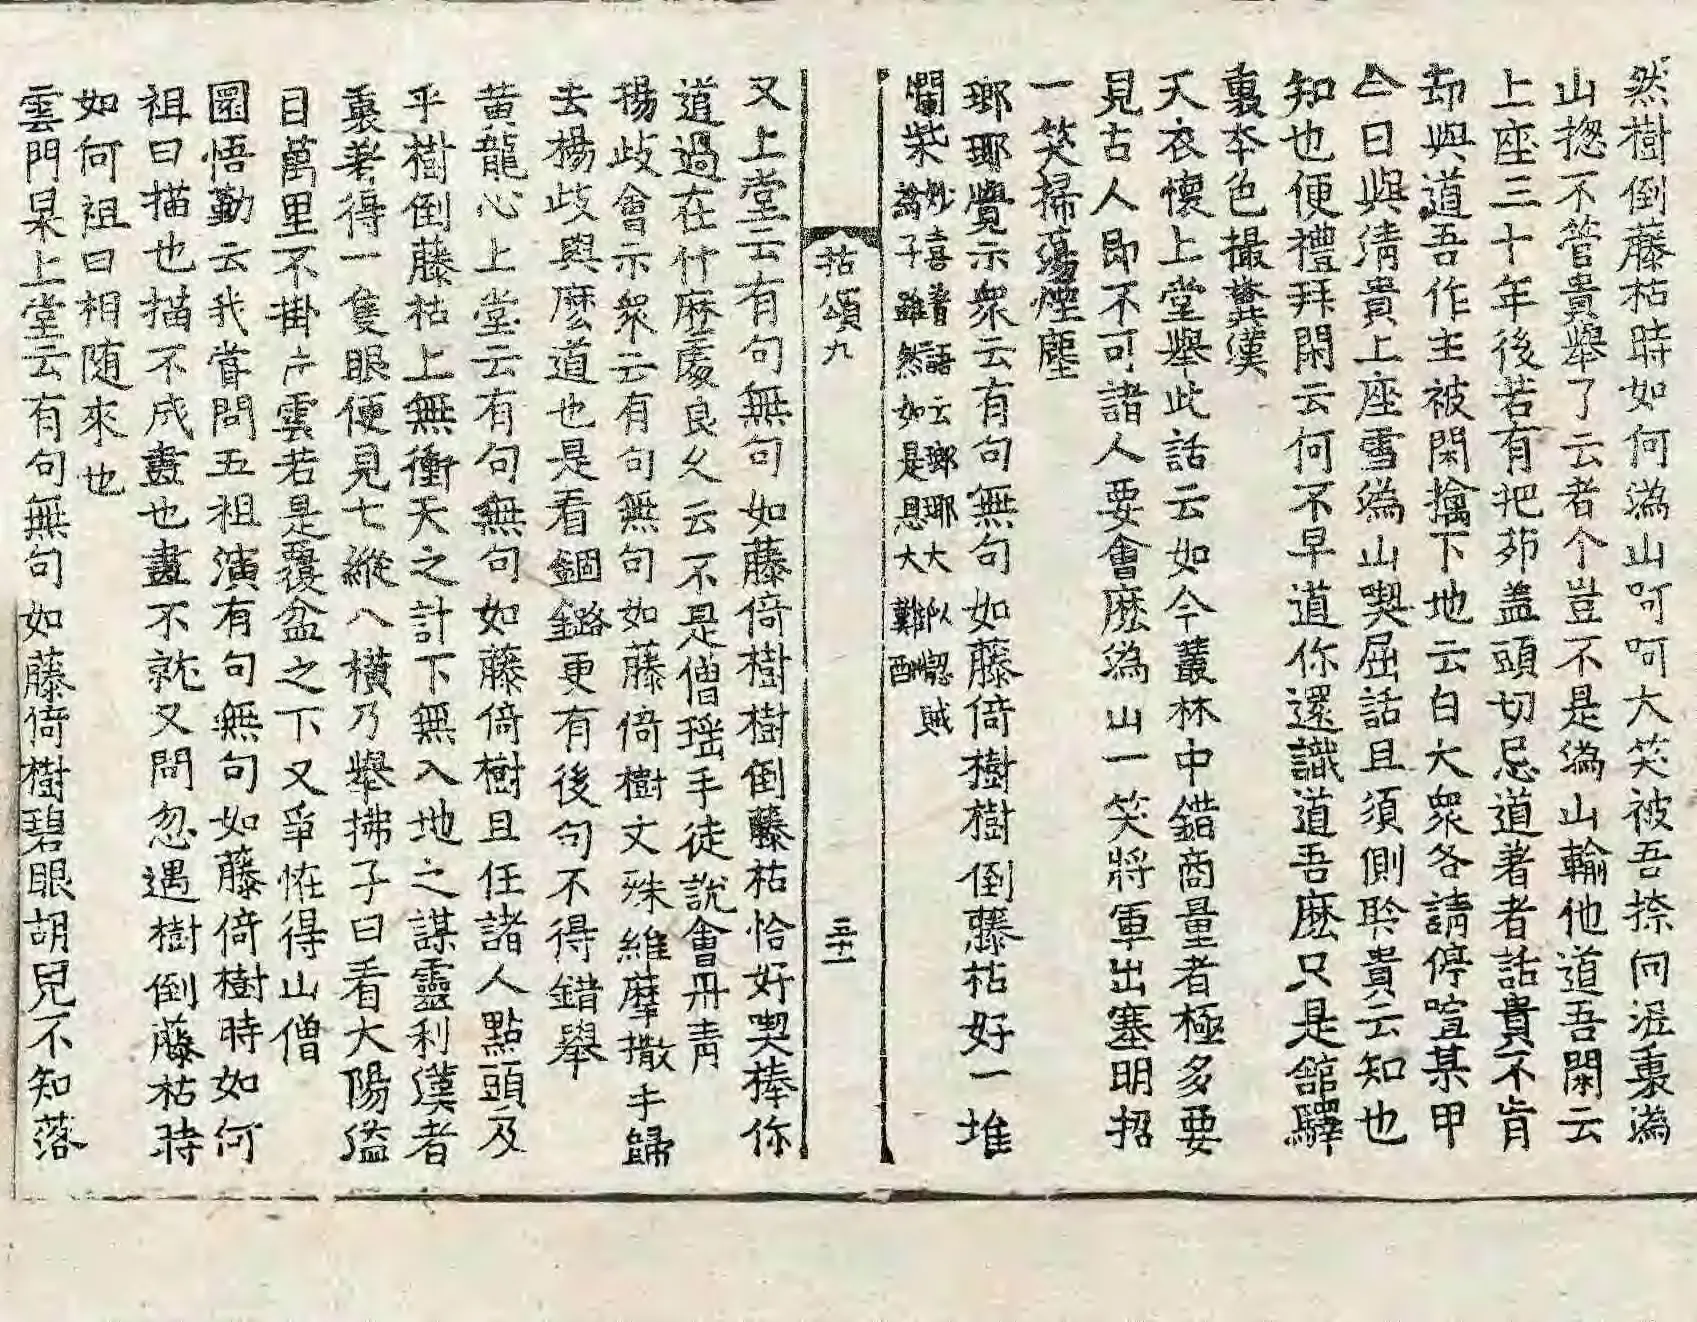 然樹倒藤枯時如何潙山呵呵大笑被吾捺向泥裏潙
山揔不管貴舉了云者个豈不是潙山輸他道吾閑云
上座三十年後若有把茆盖頭切忌道著者話貴不肯
却與道吾作主被閑擒下地云白大衆各請停喧某甲
今日與淸貴上座雪潙山喫屈話且須側聆貴云知也
知也便禮拜閑云何不早道你還識道吾麽只是舘驛
裏夲色撮糞漢
天衣懷上堂舉此話云如今叢林中錯商量者極多要
見古人即不可諸人要會麽潙山一笑將軍出塞明招
一笑掃蕩煙塵
瑯瑘覺示衆云有句無句如藤倚樹樹倒藤枯好一堆
爛柴妙喜普說云瑯瑘大似認賊
爲子雖然如是恩大難酬
拈頌九 三十一
又上堂云有句無句如藤倚樹樹倒藤枯恰好喫棒你
道過在什麽處良久云不是僧瑶手徒說會丹靑
楊歧會示衆云有句無句如藤倚樹文殊維摩撒手歸
去楊歧與麽道也是看錮鏴更有後句不得錯舉
黄龍心上堂云有句無句如藤倚樹且任諸人點頭及
乎樹倒藤枯上無衝天之計下無入地之謀靈利漢者
裏著得一隻眼便見七縱八橫乃舉拂子曰看大陽溢
目萬里不掛片雲若是覆盆之下又爭恠得山僧
圜悟勤云我甞問五祖演有句無句如藤倚樹時如何
祖曰描也描不成畫也畫不就又問忽遇樹倒藤枯時
如何祖曰相随來也
雲門杲上堂云有句無句如藤倚樹碧眼胡兒不知落